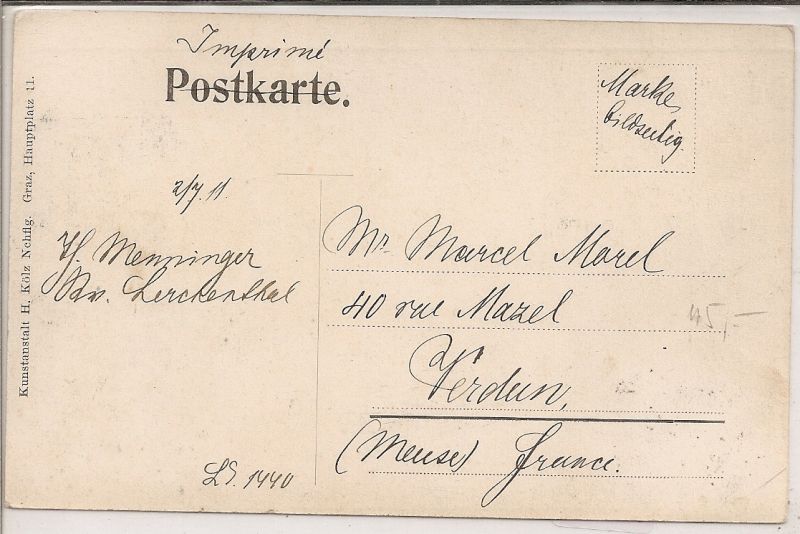 Imprimé
Postkarte.
Marke
bildseitig.
2/7.11.
Menninger
Lerchenthal
Mr Marcel Morel
40 rue Mazel
Verdun,
(Meuse) France.
LS. 1440
45,-
Kunstanstalt H. Kölz Nchflg. Graz, Hauptplatz 11.